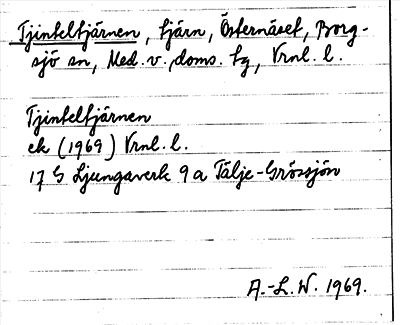 Tjinteltjärnen, tjärn, Östernäset, Borg-
sjö sn, Med. v. doms. tg, Vrnl. l.
Tjinteltjärnen
ek (1969) Vrnl. l.
17 G Ljungaverk 9 a Tälje-Grössjön
A.-L. W. 1969.